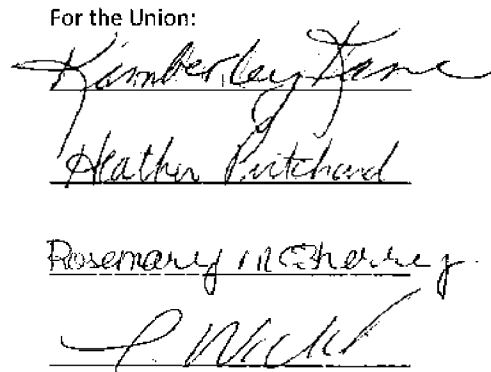 For the Union:
Kimberley Kane
Heather Pritchard
Rosemary